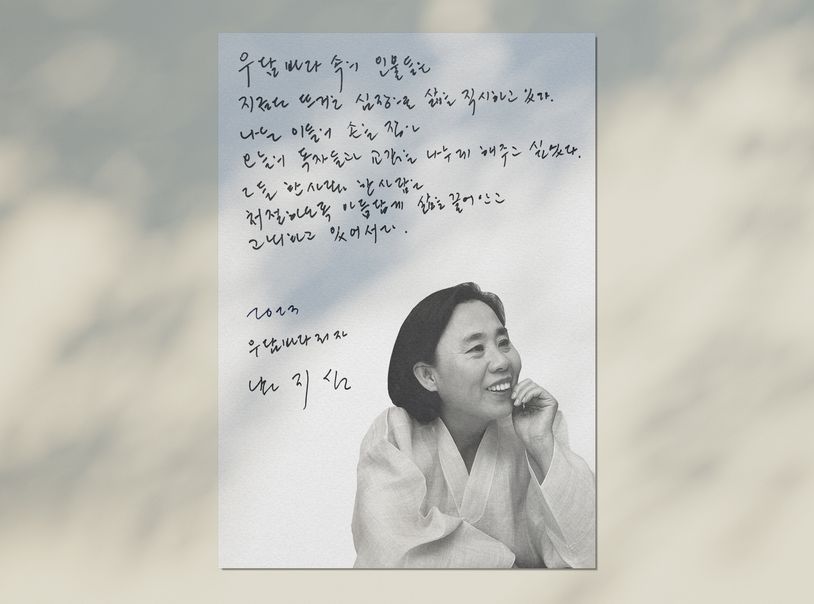 우담바라 속의 인물들은
지금도 뜨거운 심장으로 삶을 직시하고 있다.
나는 이들의 손을 잡아
오늘의 독자들과 교감을 나누게 해주고 싶었다.
그들 한사람 한사람은
처절하도록 아름답게 삶을 끌어안고
고뇌하고 있어서다.
2023
우담바라 저자
남지심